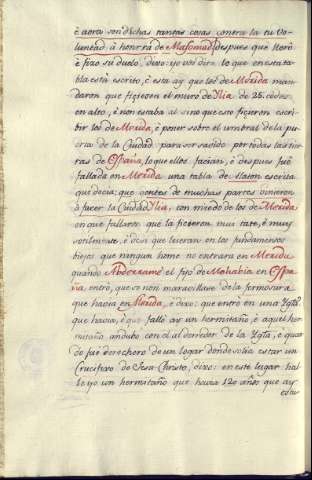 è aora son dichas tantas cosas contra la tu vo-
luntad, à honrra de Mafomad. despues que llorò
è fizo su duelo, dixo: yo vos dirè lo que en esta ta-
bla està escrito, è esta ay que los de Merida man-
daron que ficiesen el muro de Ylia de 25. codos
en alto, è non estaba al sino que esto ficieron escri-
bir los de Merida, è poner sobre el umbral de la pu-
erta de la Ciudad para ser sacido por todas las tier-
ras de España, lo que ellos facian, è despues fuè
fallada en Merida una tabla de Alaton escrita
que decia: que gentes de muchas partes vinieron
à facer la Ciudad Ylia, con miedo de los de Merida
en que fallaren que la ficieron mui tate, è muy
sotilmente, è dicen que iuraran en los fundamentos
biejos que ningun home no entrara en Merida
quando Abderrame el fijo de Mohabia en Espa-
ña entrò, que se non maravillase de la fermosura
que havia en Merida, è dixo: que entrò en una Ygla.
que havia, è que fallò ay un hermitaño, è aquel her-
mitaño andubo con el al derredor de la Ygla, è quan-
do fuè derechero de un logar donde solia estar un
Crucifixo de Jesu-Christo, dixo: en este lugar ha-
llè yo un hermitaño que havia 120 años que ay
estu